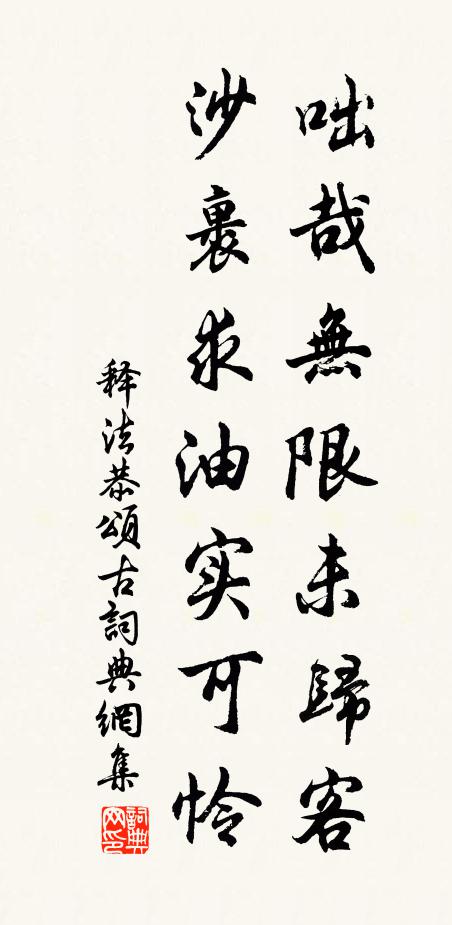 咄哉無限未歸客
沙裏求油实可怜
释法恭頌古詞典網集
詞典網印